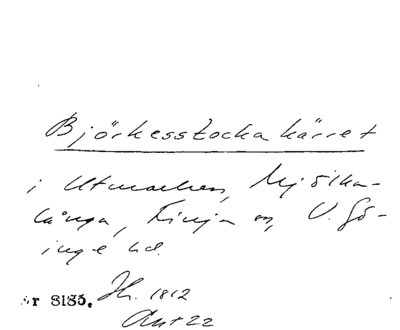 Björkesstockakärret
i Utmarken, Mjölka-
långa, Finja sn, V. Gö-
inge hd.
Nr 8185. Hr. 1812
Akt 22